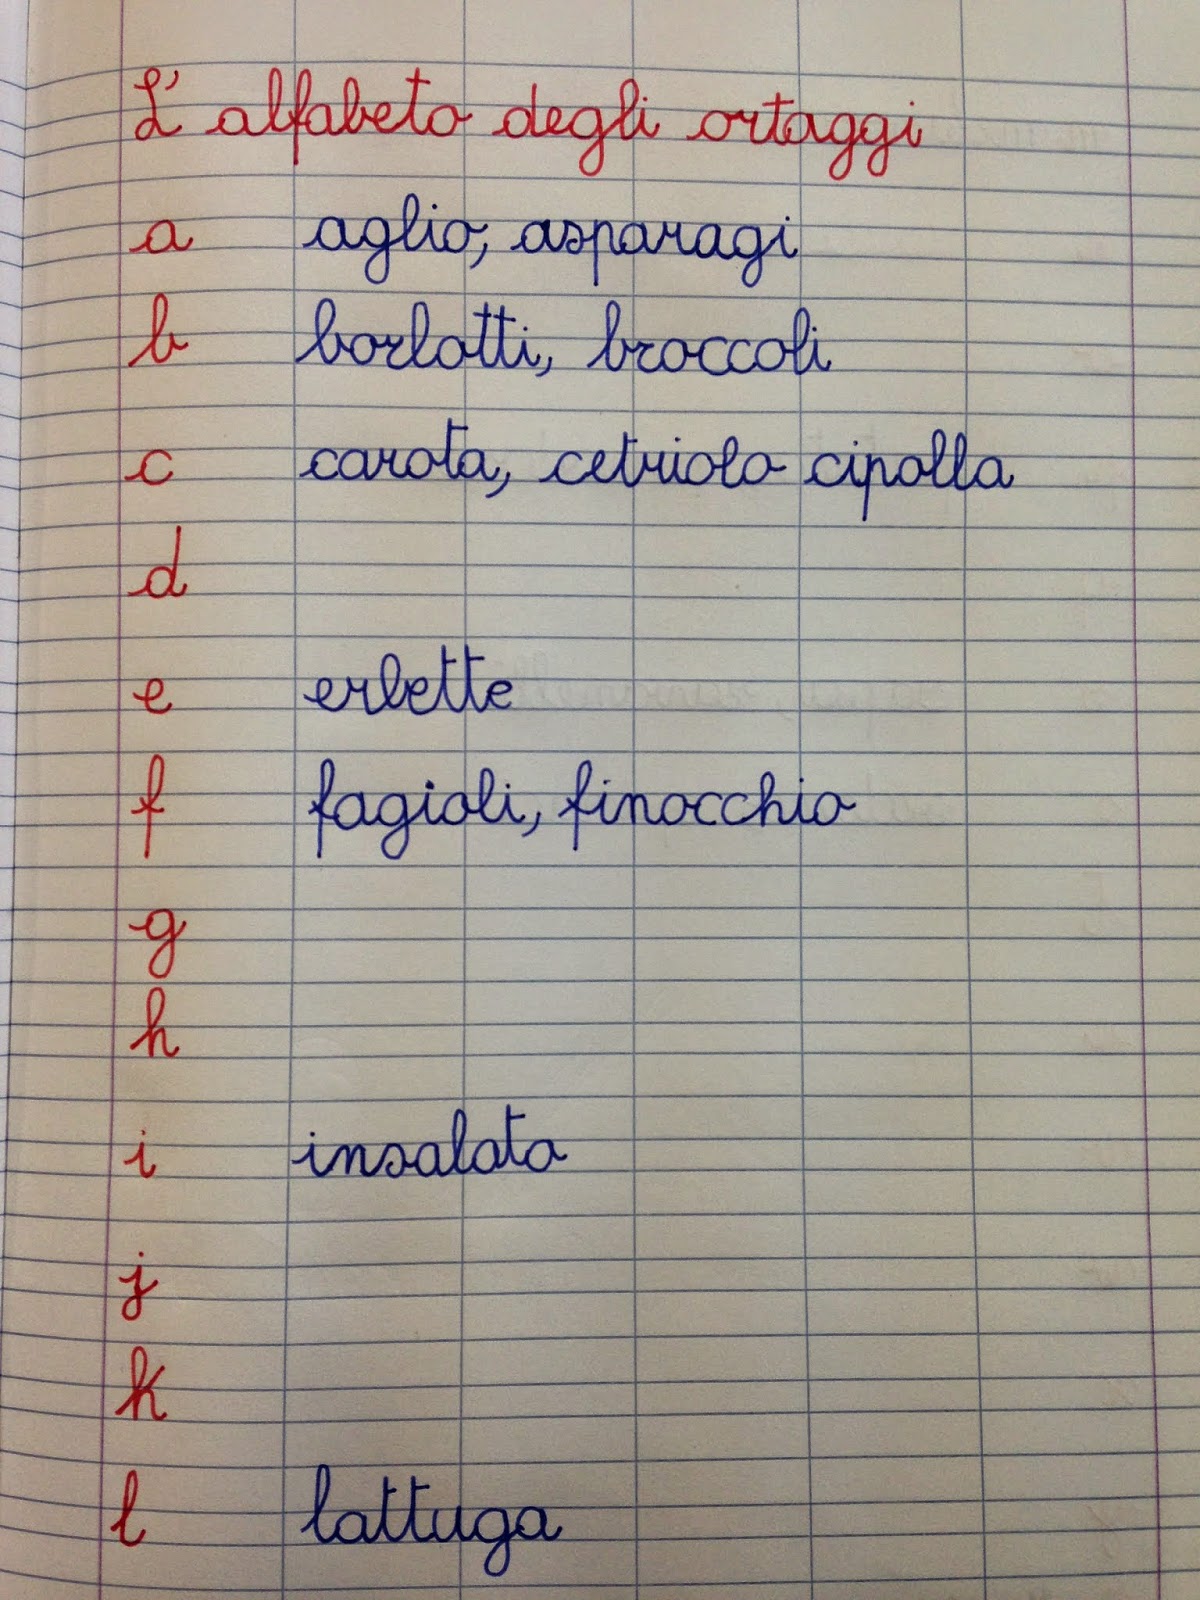 L'alfabeto degli ortaggi
a aglio, asparagi
b borlotti, broccoli
c carota, cetriolo cipolla
d
e erbette
f fagioli, finocchio
g
h
i insalata
j
k
l lattuga